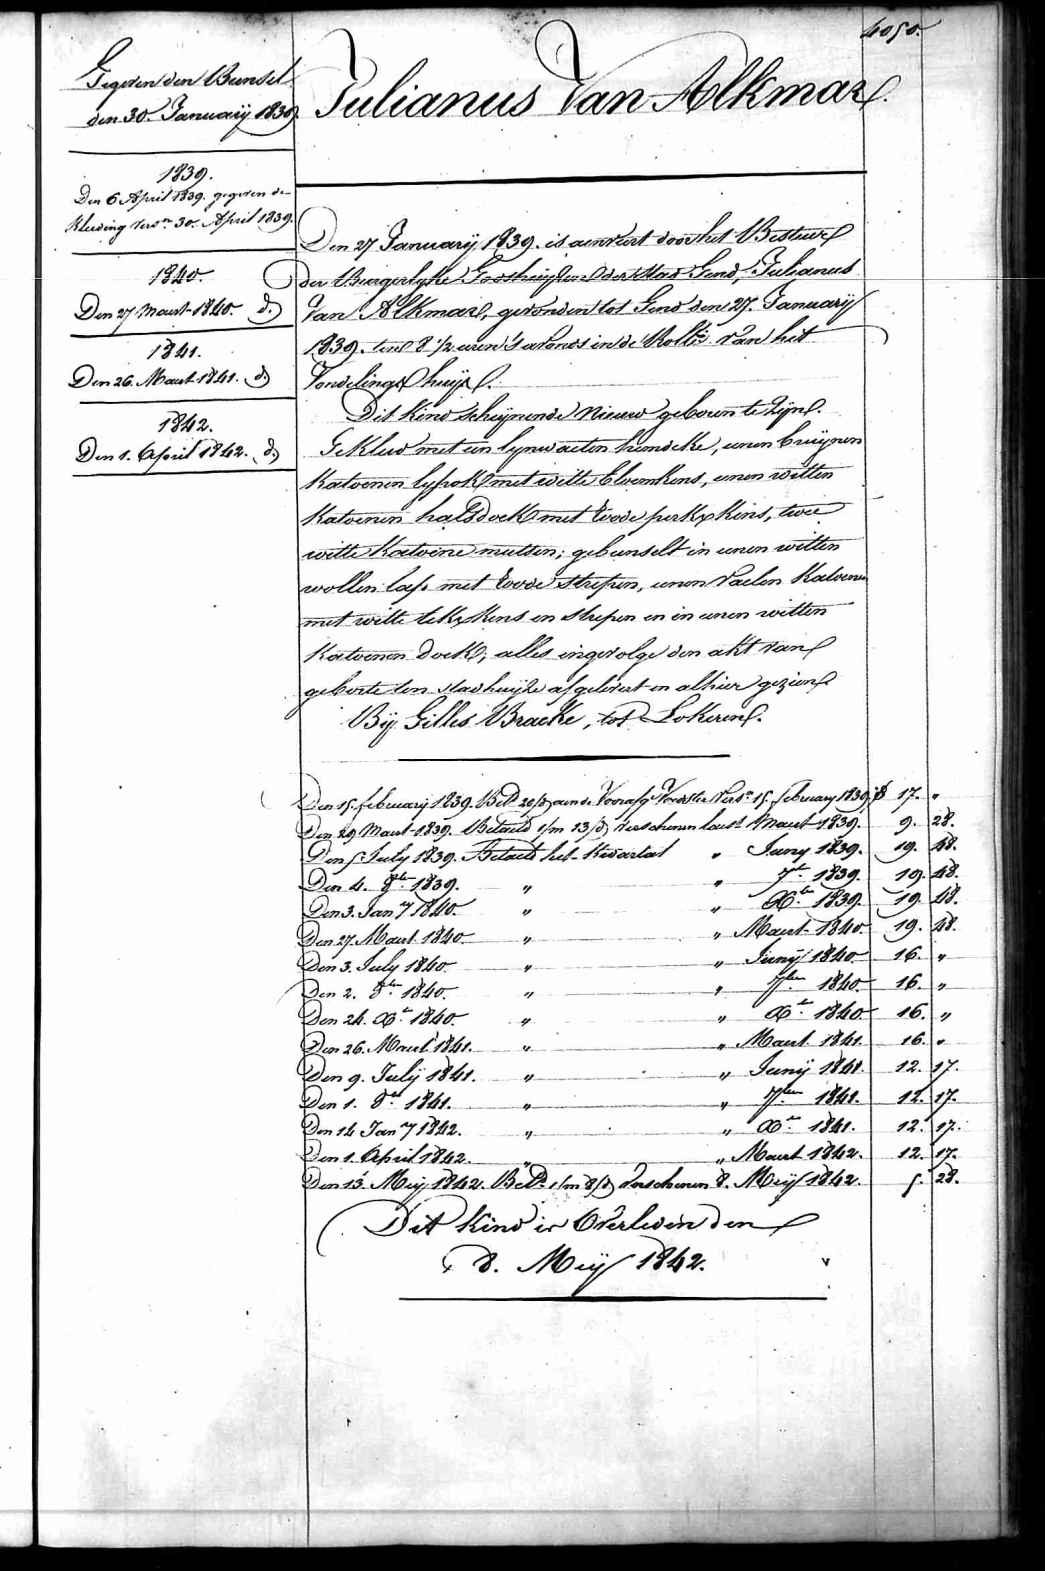 4050.
Gegeven den Bunsel
den 30. January 1839.
1839.
Den 6 April 1839. gegeven de
Kleeding vers.n 30. April 1839.
1840.
Den 27 Maert 1840. d.)
1841.
Den 26. Maert 1841. d.)
1842.
Den 1. April 1842. d.)
Julianus Van Alkmar.
Den 27 January 1839. is aenveert door het Bestuur
der Burgerlyke Godshuyzen der Stad Gend, Julianus
Van Alkmar, gevonden tot Gend den 27. January
1839. ten 8 1/2 uren 's avonds in de Rolle van het
Vondelings huys.
Dit kind schynende nieuw geboren te zyn.
Gekleed met een lynwaeten hemdeke, eenen bruynen
katoenen lyfrok met witte bloemkens, eenen witten
katoenen halsdoek met roode perkxkens, twee
witte katoene mutsen; gebunselt in eenen witten
wollen lap met roode strepen, eenen vaelen katoenen
met witte tekxkens en strepen en in eenen witten
katoenen doek, alles ingevolge den akt van
geboorte ten stadhuyze afgelevert en alhier gezien
Bij Gilles Bracke, tot Lokeren.
Den 15. february 1839. Bet.d 20/d) aen de Voorsz Voedster Vers.n 15. february 1839. 17. "
Den 29 Maert 1839. Betaeld 1/m 13/d) verschenen laest Maert 1839. 9. 28.
Den 5 July 1839. Betaeld het kwartal " Juny 1839. 19. 48.
Den 4. 8.bre 1839. " " 7.bre 1839. 19. 48.
Den 3. Jan.y 1840. " " X.bre 1839. 19. 48.
Den 27. Maert 1840. " " Maert 1840. 19. 48.
Den 3. July 1840. " " Juny 1840. 16. "
Den 2. 8.bre 1840. " " 7.bre 1840. 16. "
Den 24. X.bre 1840. " " X.bre 1840. 16. "
Den 26. Maert 1841. " " Maert 1841. 16. "
Den 9. July 1841. " " Juny 1841. 12. 17.
Den 1. 8.bre 1841. " " 7.bre 1841. 12. 17.
Den 14 Jan.y 1842. " " X.bre 1841. 12. 17.
Den 1. April 1842. " " Maert 1842. 12. 17.
Den 13. Mey 1842. Bet.d 1/m 8/d) verschenen 8. Mey 1842. 5. 28.
Dit kind is Overleden den
8. Mey 1842.